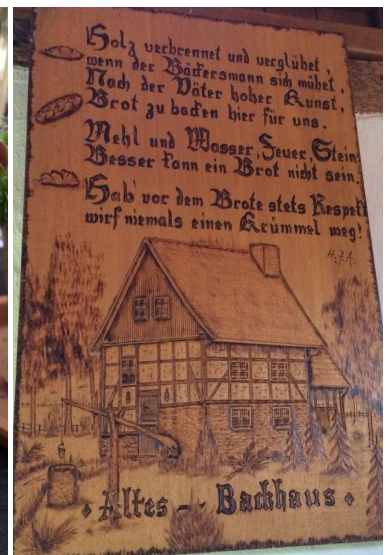 Holz verbrennet und verglühet,
wenn der Bäckersmann sich mühet,
Nach der Väter hoher Kunst,
Brot zu backen hier für uns.
Mehl und Wasser, Feuer, Stein:
Besser kann ein Brot nicht sein.
Hab' vor dem Brote stets Respekt
wirf niemals einen Krümmel weg!
H.J.A.
Altes - Backhaus